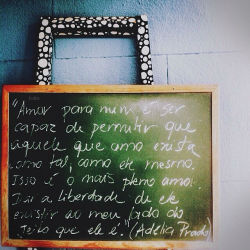 "Amor para mim é ser
capaz de permitir que
aquele que amo exista
como tal, como ele mesmo.
Isso é o mais pleno amor.
Dar a liberdade de ele
existir ao meu lado do
jeito que ele é." (Adélia Prado)